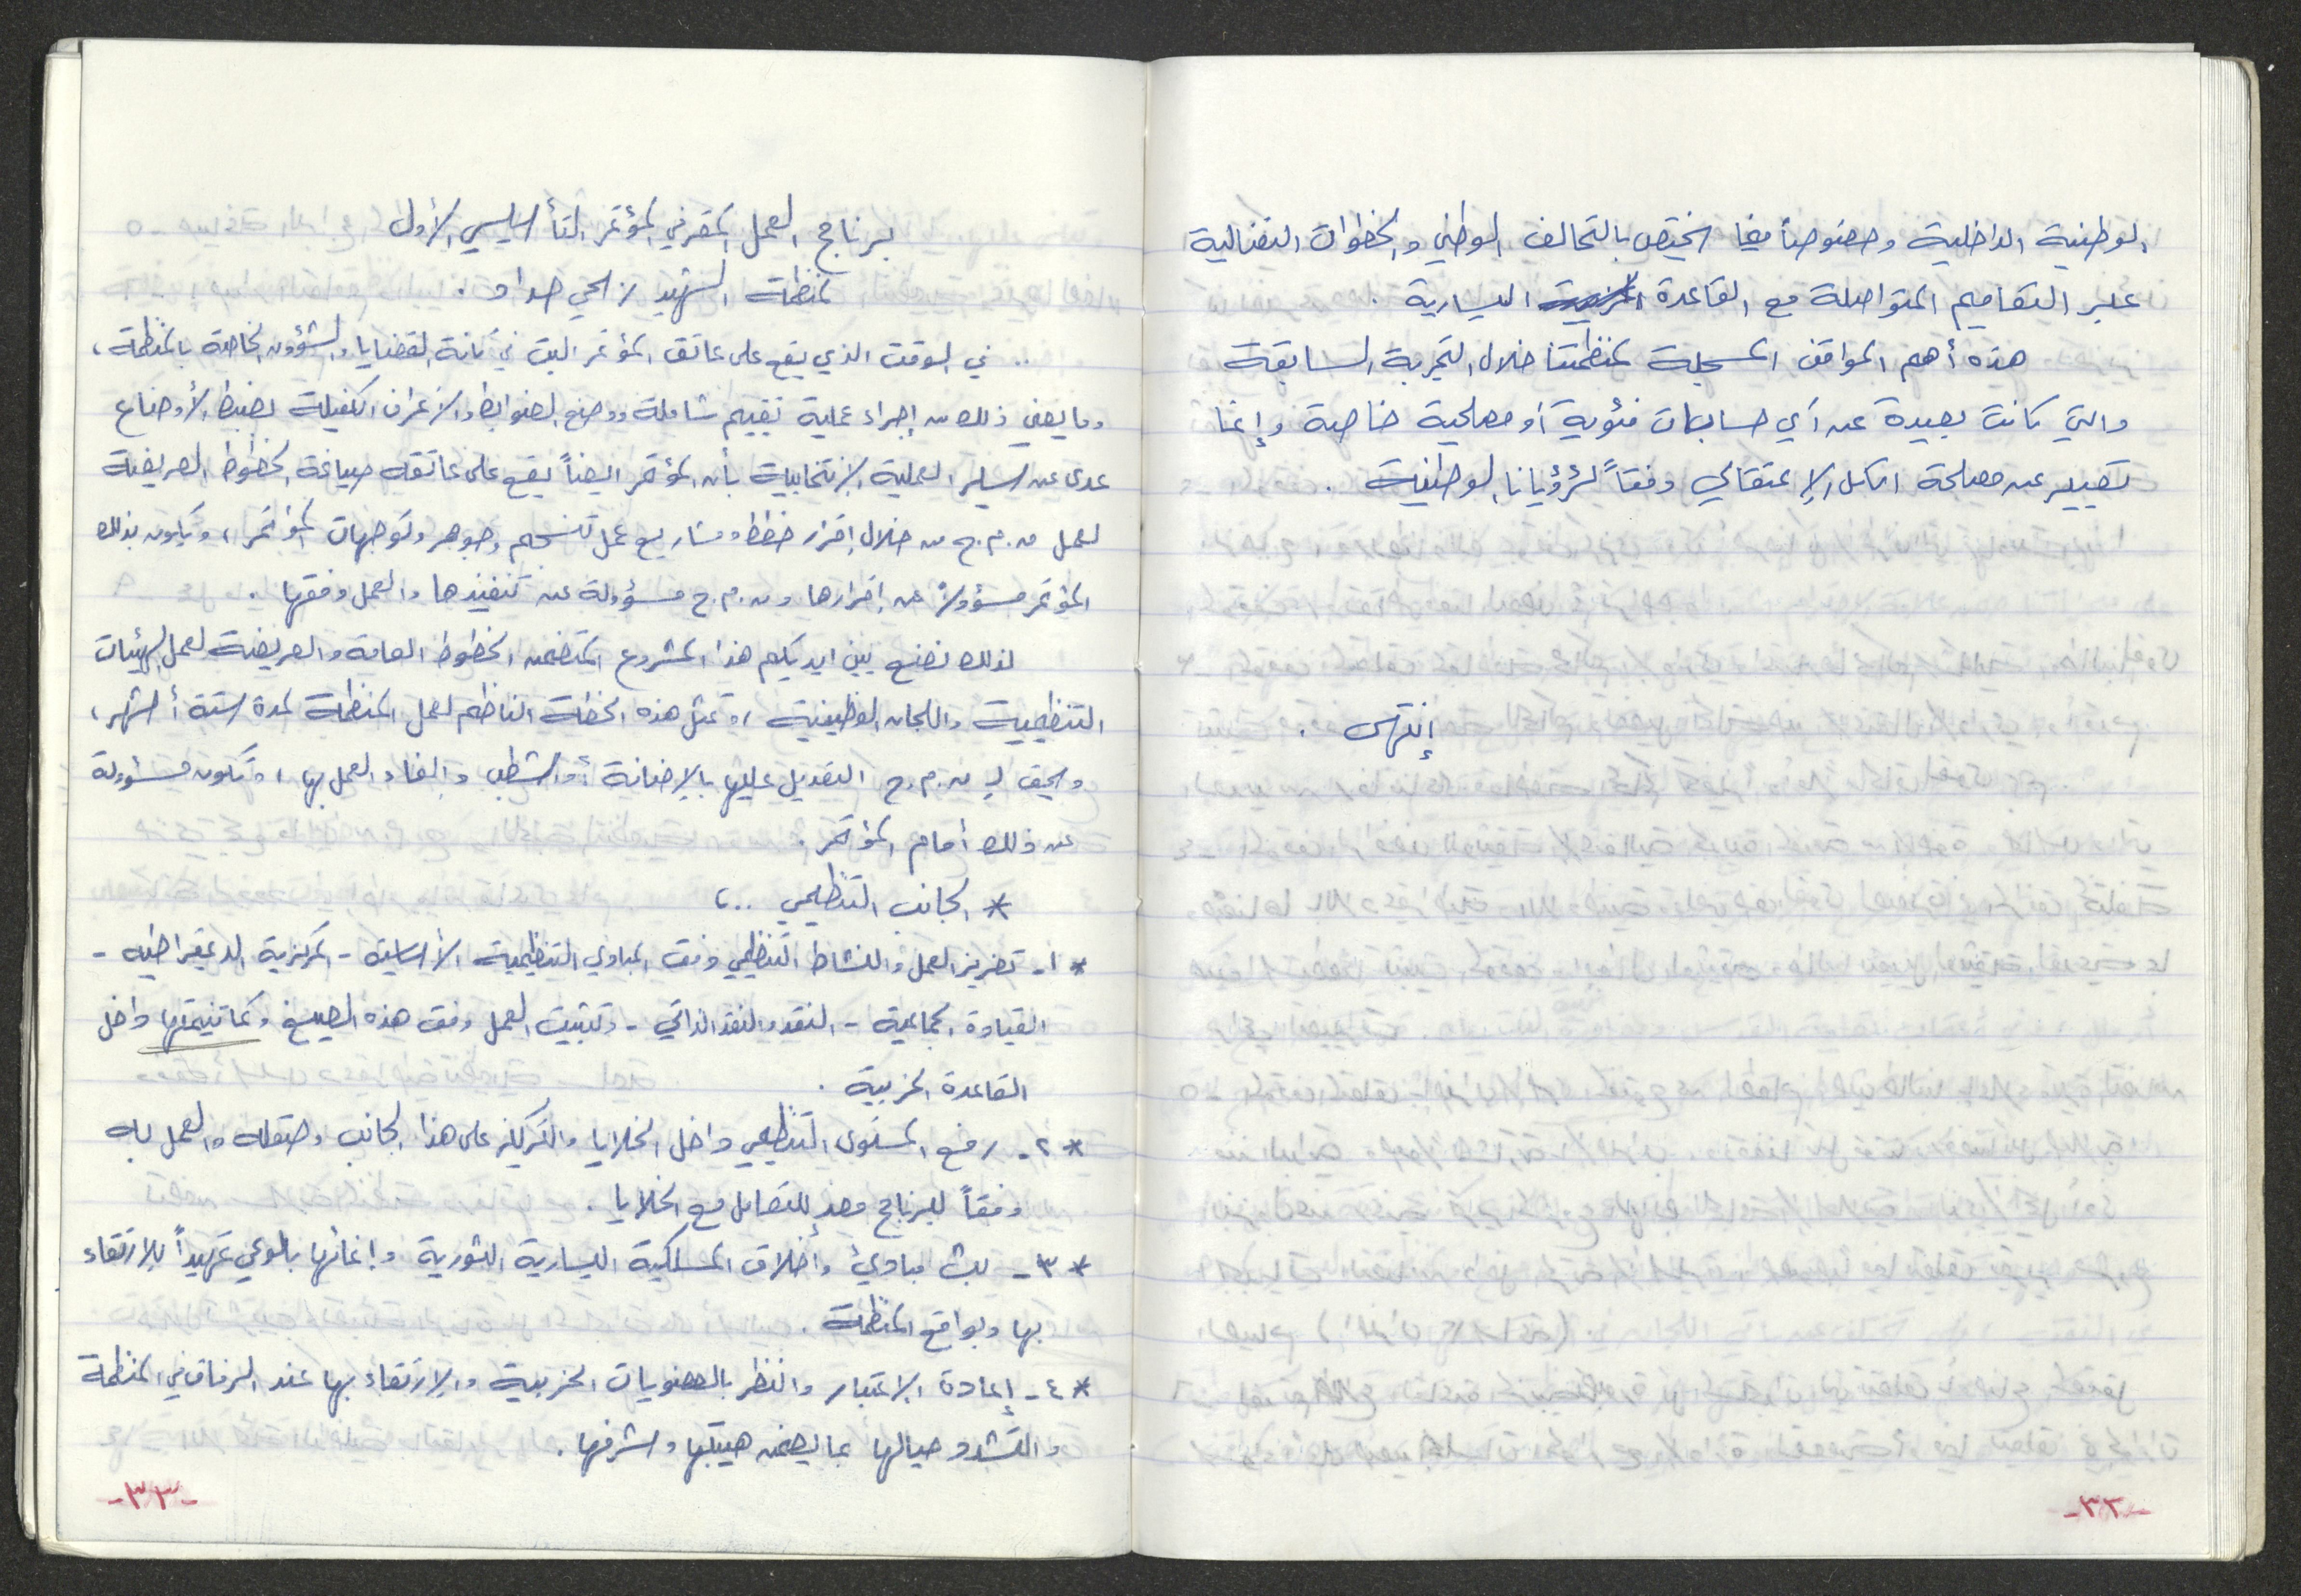 الوطنية الداخلية وخصوصاً فيما يختص بالتحالف الوطني والخطوات النضالية
عبر التعاميم المتواصلة مع القاعدة اليسارية .
هذه أهم المواقف المسجلة لمنظمتنا خلال التجربة السابقة
والتي كانت بعيدة عن أي حسابات فئوية أو مصلحية خاصة وإنما
تعبير عن مصلحة الكل الإعتقالي وفقاً لرؤيانا الوطنية .
إنتهى .
-٣٢-
برنامج العمل المقر في المؤتمر التأسيسي الأول
لمنظمة الشهيد / لحي حداد .
.. في الوقت الذي يقع على عاتق المؤتمر البت في كافة القضايا والشؤون الخاصة بالمنظمة ،
وما يعني ذلك من إجراء عملية تقييم شاملة ووضع الضوابط والأعراف الكفيلة لضبط الأوضاع
عدى عن سير العملية الإنتخابية بأن المؤتمر ايضاً يقع على عاتقه صياغة الخطوط العريضة
لعمل م.م.ح من خلال إقرار خطط ومشاريع عمل تنسجم وجوهر وتوجهات المؤتمر ، ويكون بذلك
المؤتمر مسؤولاً عن إقرارها و م.م.ح مسؤولة عن تنفيذها والعمل وفقها .
لذلك نضع بين ايديكم هذا المشروع المتضمن الخطوط العامة والعريضة لعمل الهيئات
التنظيمية واللجان الوظيفية ، وتمثل هذه الخطة الناظم لعمل المنظمة لمدة ستة أشهر ،
ويحق لـ م.م.ح التعديل عليها بالإضافة أو الشطب والغاء العمل بها ، وتكون مسؤولة
عن ذلك أمام المؤتمر .
* الجانب التنظيمي ..،
* ١- تعزيز العمل والنشاط التنظيمي وفق المبادئ التنظيمية الأساسية - المركزية الديمقراطية -
القيادة الجماعية - النقد والنقد الذاتي - وتثبيت العمل وفق هذه الصيغ وكما تيمتها داخل
القاعدة الحزبية .
* ٢- رفع المستوى التنظيمي داخل الخلايا والتركيز على هذا الجانب وصقله والعمل به
وفقاً لبرنامج معد للتعامل مع الخلايا .
* ٣- بث مبادئ وأخلاق المسلكية اليسارية الثورية وإغنائها بالوعي تمهيداً للارتقاء
بها وبواقع المنظمة .
* ٤- إعادة الاعتبار والنظر بالعضويات الحزبية والإرتقاء بها عند الرفاق في المنظمة
والتشدد حيالها بما يضمن هيبتها وشرفها .
-٣٣-